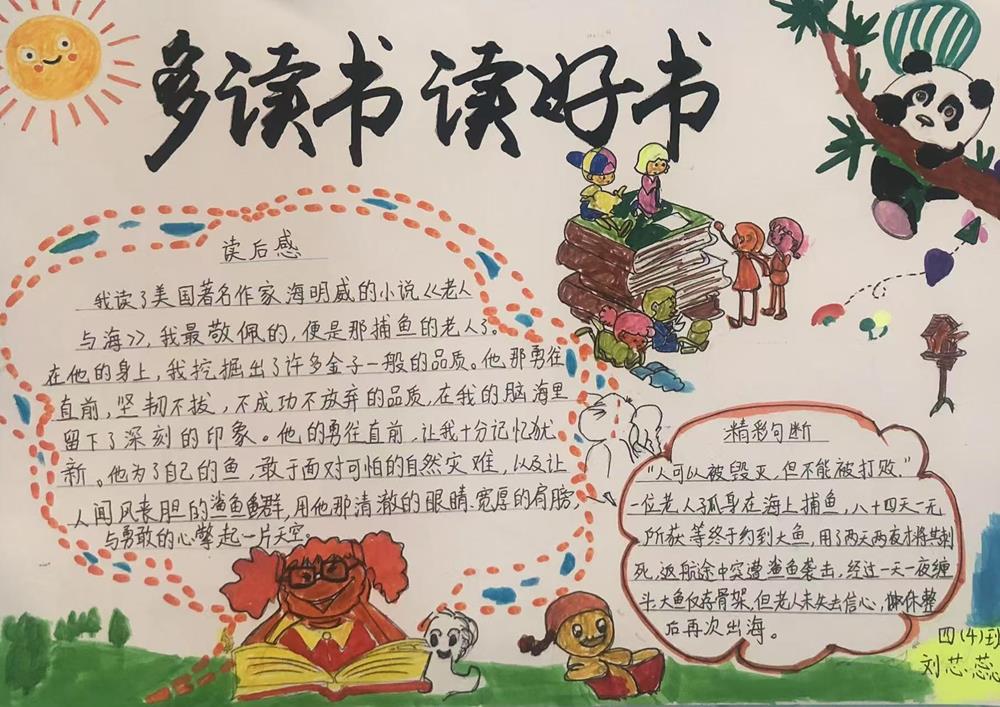 多读书 读好书
读后感
我读了美国著名作家海明威的小说《老人
与海》,我最敬佩的,便是那捕鱼的老人了。
在他的身上,我挖掘出了许多金子一般的品质。他那勇往
直前,坚韧不拔,不成功不放弃的品质,在我的脑海里
留下了深刻的印象。他的勇往直前,让我十分记忆犹
新。他为了自己的鱼,敢于面对可怕的自然灾难,以及让
人闻风丧胆的鲨鱼群,用他那清澈的眼睛、宽厚的肩膀,
与勇敢的心擎起一片天空。
精彩句断
“人可以被毁灭,但不能被打败.”
一位老人孤身在海上捕鱼,八十四天一无
所获等终于钓到大鱼,用了两天两夜才将其刺
死,返航途中突遭鲨鱼袭击,经过一天一夜缠
斗.大鱼仅存骨架,但老人未失去信心,休整
后再次出海。
四(4)班
刘芯蕊